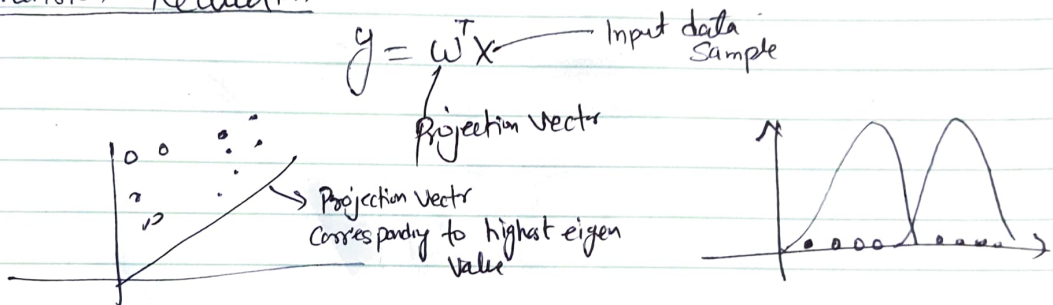 y = ωᵀx
Input data
Sample
Projection Vectr
Projection Vectr
Corresponding to highest eigen
Value